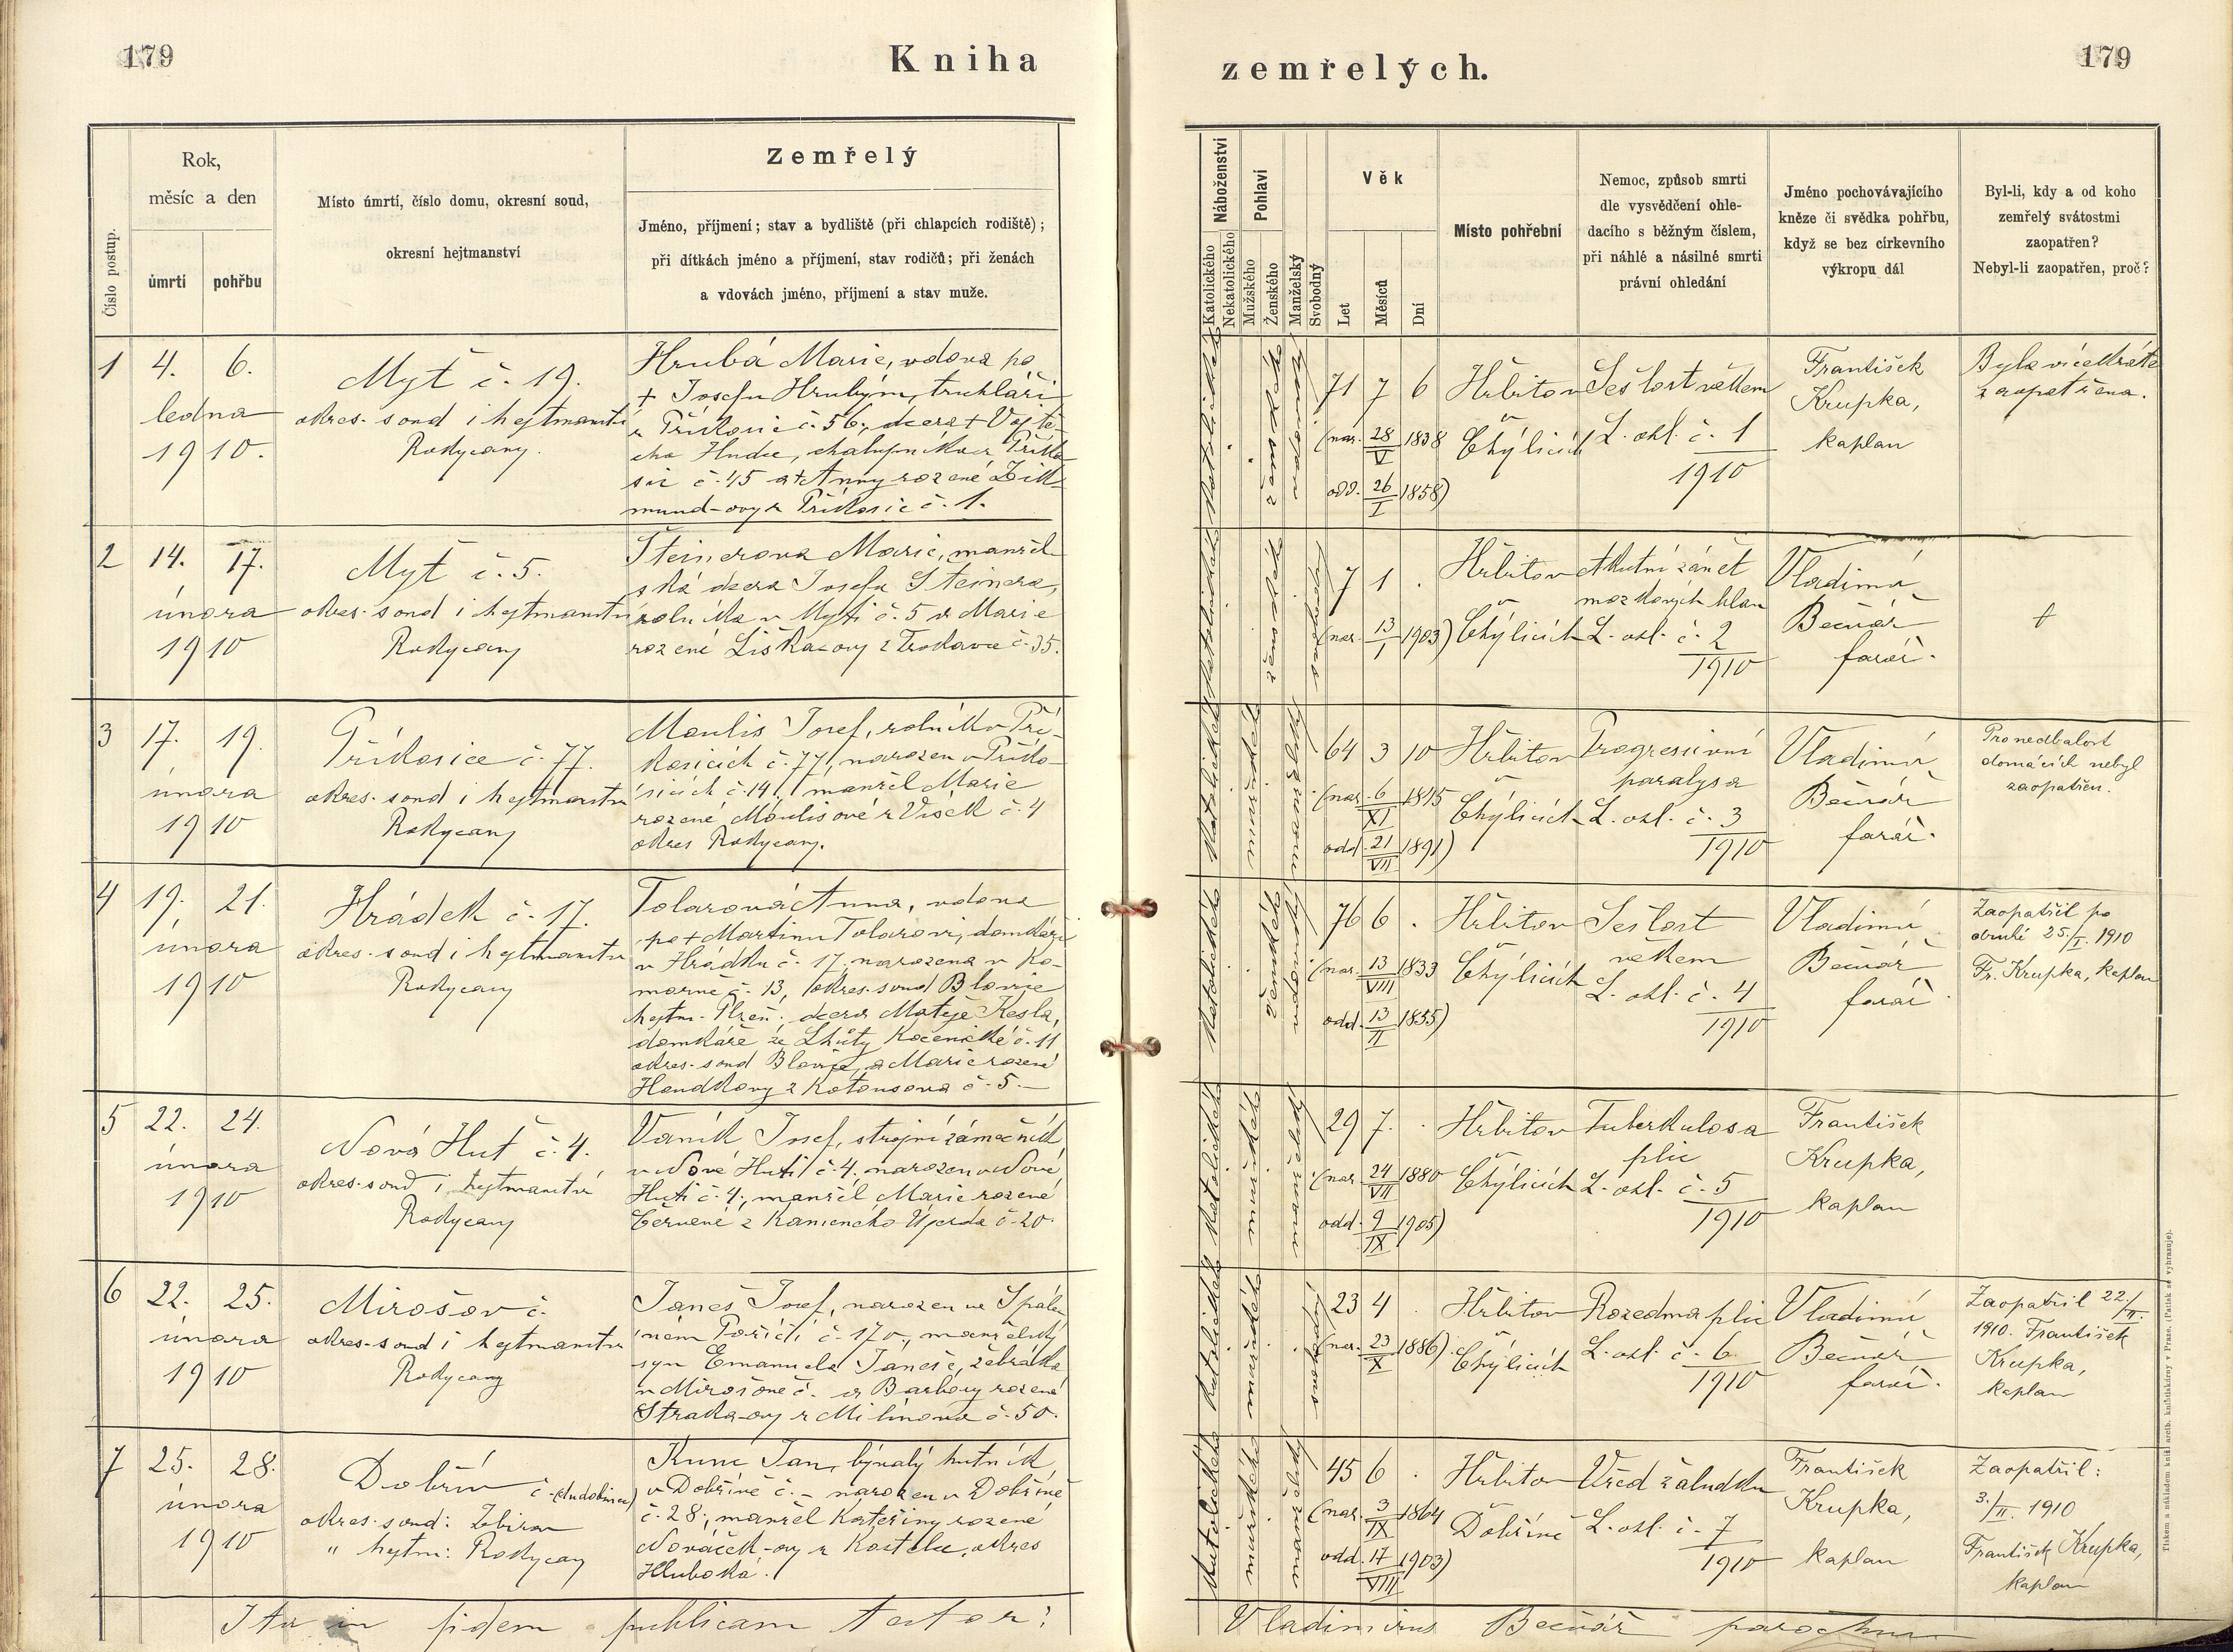 179
Kniha
zemřelých.
179
Číslo postup.
Rok,
měsíc a den
úmrtí
pohřbu
Místo úmrtí, číslo domu, okresní soud,
okresní hejtmanství
Zemřelý
Jméno, příjmení; stav a bydliště (při chlapcích rodiště);
při dítkách jméno a příjmení, stav rodičů; při ženách
a vdovách jméno, příjmení a stav muže.
Náboženství
Katolického
Nekatolického
Pohlaví
Mužského
Ženského
Manželský
Svobodný
Věk
Let
Měsíců
Dní
Místo pohřební
Nemoc, způsob smrti
dle vysvědčení ohle-
dacího s běžným číslem,
při náhlé a násilné smrti
právní ohledání
Jméno pochovávajícího
kněze či svědka pohřbu,
když se bez církevního
výkropu dál
Byl-li, kdy a od koho
zemřelý svátostmi
zaopatřen?
Nebyl-li zaopatřen, proč?
1
4. 6.
ledna
1910.
Myť č. 19.
okres. soud i hejtmanství
Rokycany.
Hrubá Marie, vdova po
+ Josefu Hrubým, truhláři
z Příkosic č. 56, dcera + Vojtě-
cha Hudce, chalupníka z Příko
sic č. 45 a + Anny rozené Zik-
mund-ovy z Příkosic č. 1.
katolického
ženského
vdovanský
71 7 6
(nar. 28/V 1838
odd. 26/I 1858)
Hřbitov
v
Čhýlicích
Sešlost věkem
L. ohl. č. 1
1910
František
Krupka,
kaplan
Byla vícekráte
zaopatřena.
2
14. 17.
února
1910
Myť č. 5.
okres. soud i hejtmanství
Rokycany
Šteinerova Marie, manžel-
ská dcera Josefa Šteinera,
rolníka v Mýti č. 5 a Marie
rozené Liška-ovy z Trokavce č. 35.
katolického
ženského
svobodná
7 1 .
(nar. 13/I 1903)
Hřbitov
v
Čhýlicích
Akutní zánět
mozkových blan
L. ohl. č. 2
1910
Vladimír
Bečvář
farář.
+
3
17. 19.
února
1910
Příkosice č. 77.
okres. soud i hejtmanství
Rokycany
Moulis Josef, rolník v Pří-
kosicích č. 77, narozen v Příko-
sicích č. 14, manžel Marie
rozené Moulisové z Vísek č. 4
okres Rokycany.
katolického
mužského
manželský
64 3 10
(nar. 6/XI 1845
odd. 21/VII 1891)
Hřbitov
v
Čhýlicích
Progressivní
paralysa
L. ohl. č. 3
1910
Vladimír
Bečvář
farář.
Pro nedbalost
domácích nebyl
zaopatřen.
4
19. 21.
února
1910
Hrádek č. 17.
okres. soud i hejtmanství
Rokycany
Tolarová Anna, vdova
po + Martinu Tolarovi, domkáři
v Hrádku č. 17, narozena v Ko-
morně č. 13, okres. soud Blovice
hejtm. Plzeň, dcera Matěje Kesla,
domkáře ze Lhůty Kocenické č. 11
okres. soud Blovice, a Marie rozené
Houdkovy z Kotousova č. 5.
katolického
ženského
vdovanský
76 6 .
(nar. 13/VIII 1833
odd. 13/II 1855)
Hřbitov
v
Čhýlicích
Sešlost
věkem
L. ohl. č. 4
1910
Vladimír
Bečvář
farář.
Zaopatřil po
druhé 25./I. 1910
Fr. Krupka, kaplan
5
22. 24.
února
1910
Nová Huť č. 4.
okres. soud i hejtmanství
Rokycany
Vaník Josef, strojní zámečník
v Nové Huti č. 4, narozen v Nové
Huti č. 4, manžel Marie rozené
Červené z Kamenného Újezda č. 20.
katolického
mužského
manželský
29 7. .
(nar. 24/VII 1880
odd. 9/IX 1905)
Hřbitov
v
Čhýlicích
Tuberkulosa
plic
L. ohl. č. 5
1910
František
Krupka,
kaplan
6
22. 25.
února
1910
Mirošov č.
okres. soud i hejtmanství
Rokycany
Janeš Josef, narozen ve Spále-
ném Poříčí č. 170, manželský
syn Emanuela Janeše, žebráka
v Mirošově č. – a Barbory rozené
Straka-ovy z Milínova č. 50.
katolického
mužského
svobodný
23 4 .
(nar. 23/X 1886)
Hřbitov
v
Čhýlicích
Rozedma plic
L. ohl. č. 6
1910
Vladimír
Bečvář
farář.
Zaopatřil 22./II.
1910. František
Krupka,
kaplan
7
25. 28.
února
1910
Dobřív č. (chudobinec)
okres. soud: Zbirov
" hejtm: Rokycany
Kunc Jan, bývalý hutník
v Dobřívě č. – narozen v Dobřívě
č. 28, manžel Kateřiny rozené
Nováček-ovy z Kostelce, okres
Hluboká.
katolického
mužského
manželský
45 6 .
(nar. 3/IX 1864
odd. 17/VIII 1903)
Hřbitov
v
Dobřívě
Vřed žaludku
L. ohl. č. 7
1910
František
Krupka,
kaplan
Zaopatřil:
3./II. 1910
František Krupka,
kaplan
Ita in fidem publicam testor:
Vladimirus Bečvář parochus
Tiskem a nákladem kníž. arcib. knihtiskárny v Praze. (Patisk se vyhrazuje).